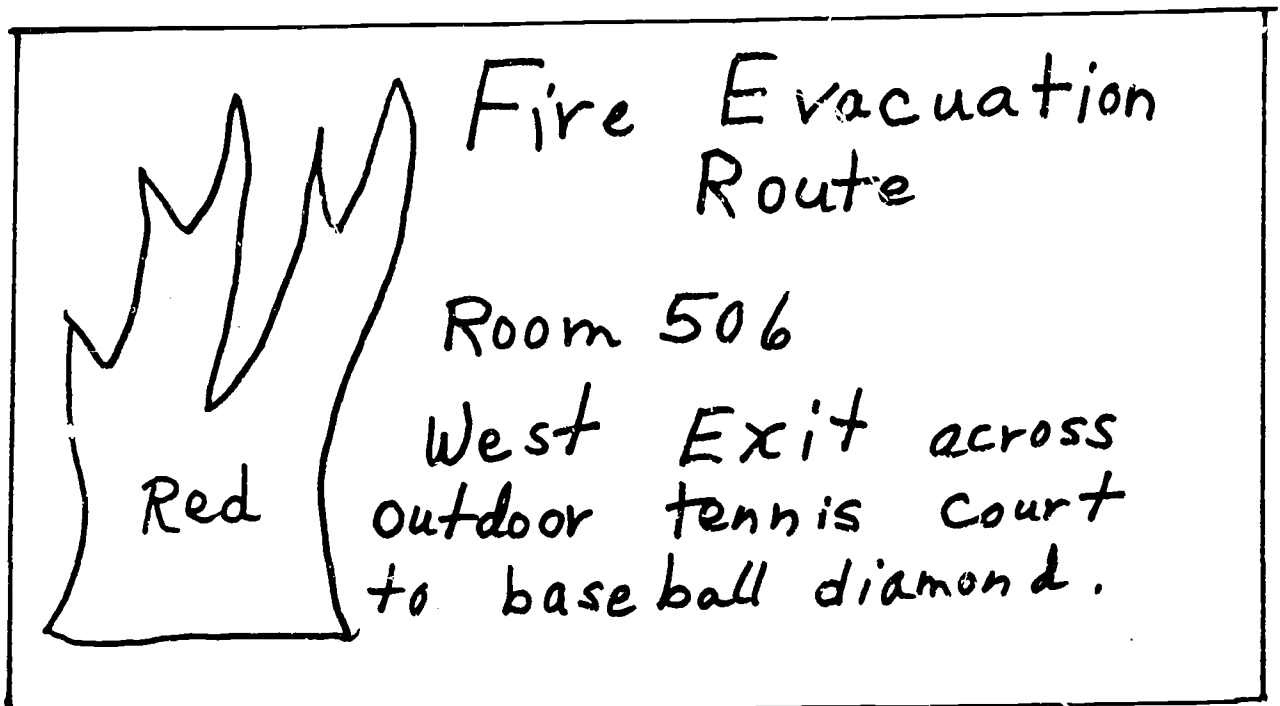 Fire Evacuation
Route
Room 506
West Exit across
Red
outdoor tennis court
to baseball diamond.